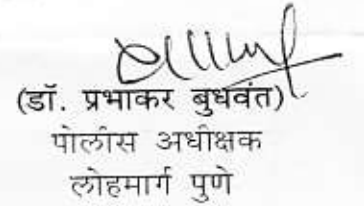 (डॉ. प्रभाकर बुधवंत)
पोलीस अधीक्षक
लोहमार्ग पुणे